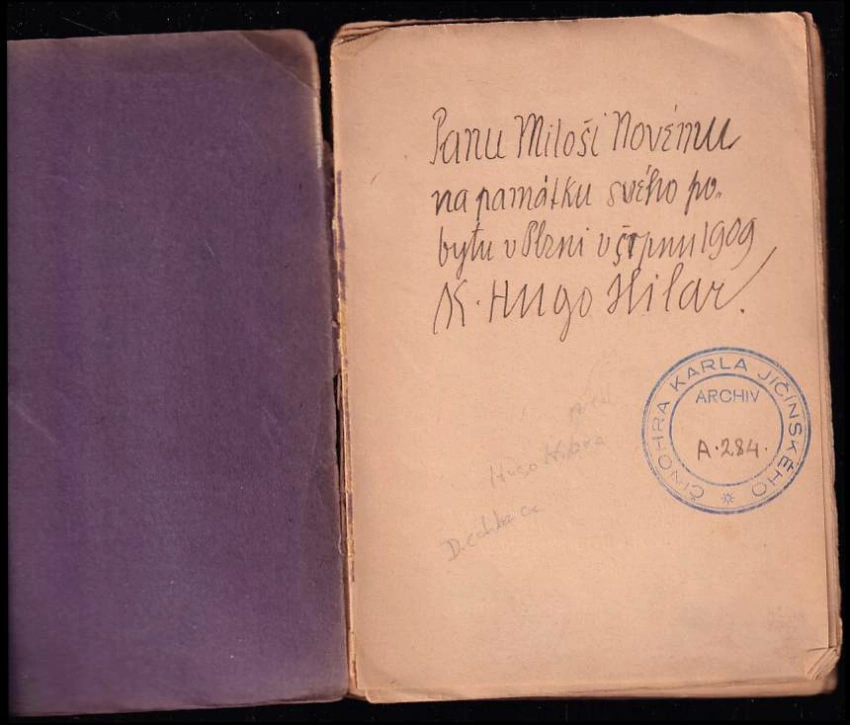 Panu Miloši Novému
na památku svého po-
bytu v Plzni v srpnu 1909
K. Hugo Hilar.
ČINOHRA KARLA JIČÍNSKÉHO
ARCHIV
A·284·
Hugo